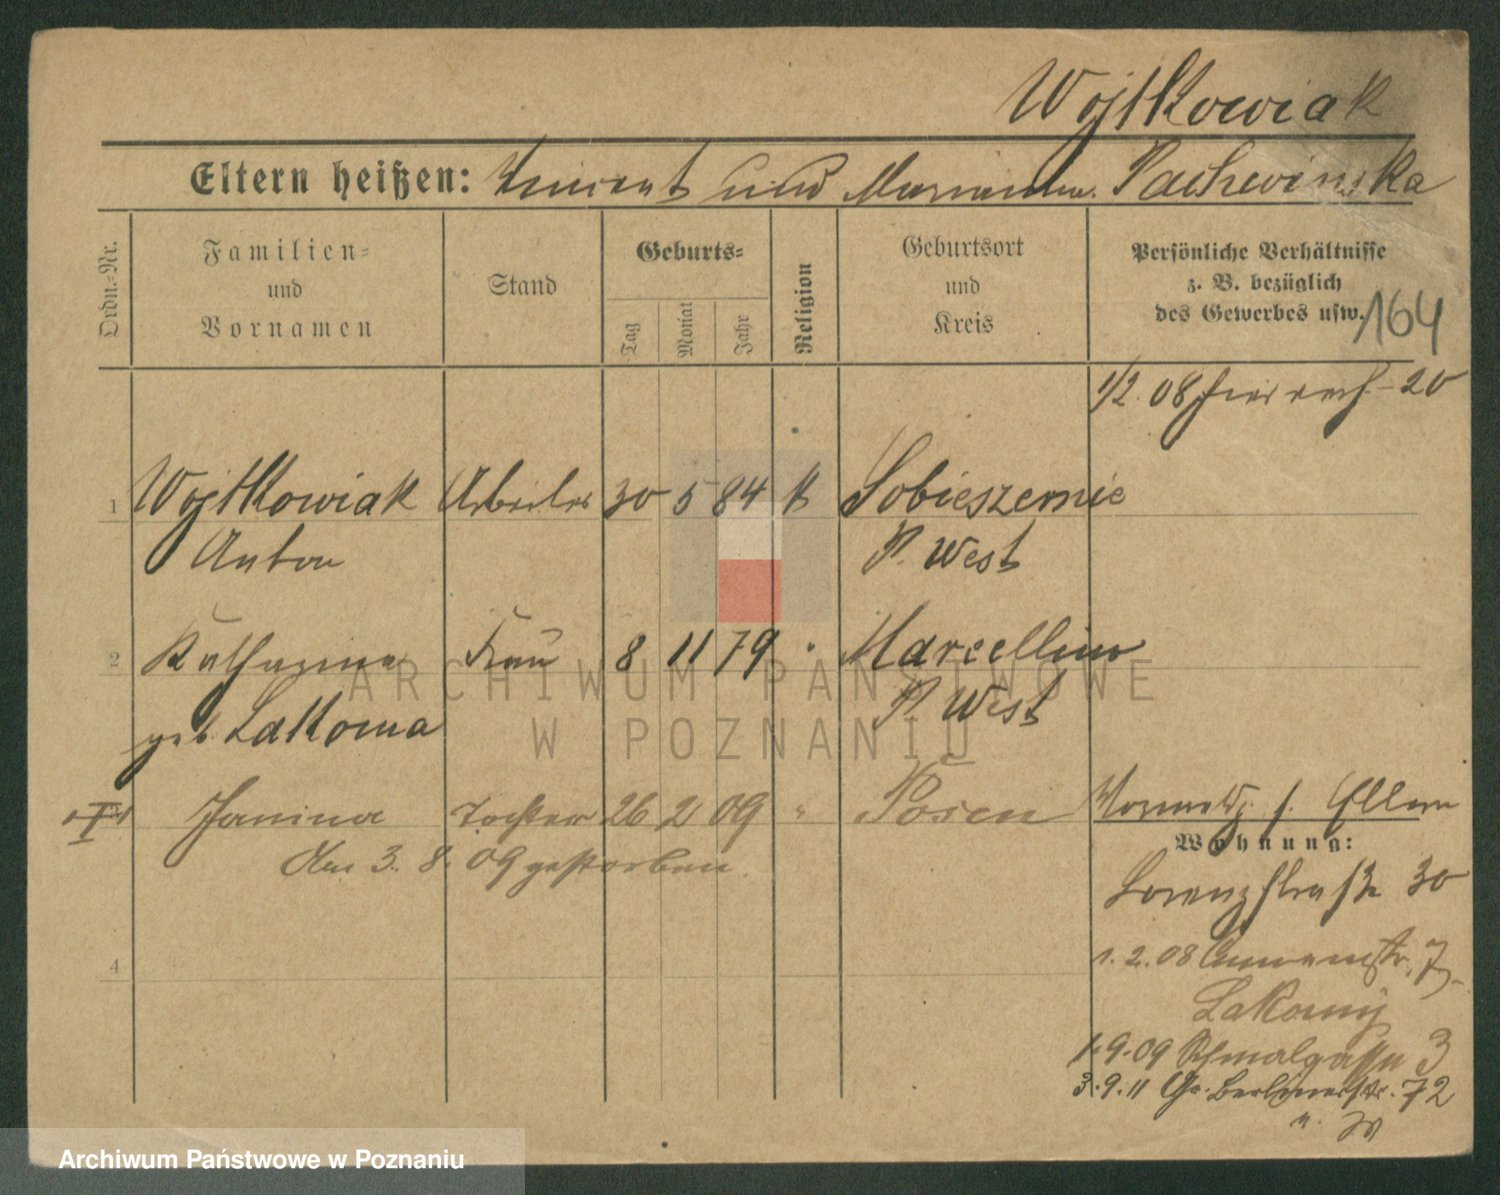 Wojtkowiak
Eltern heißen: Vincent und Marianna Pachwinska
Ordn.-Nr.
Familien-
und
Vornamen
Stand
Geburts-
Tag
Monat
Jahr
Religion
Geburtsort
und
Kreis
Persönliche Verhältnisse
z. B. bezüglich
des Gewerbes usw.
164
1/2. 08 20
1 Wojtkowiak Arbeiter 30 5 84 k Sobieszernie
Anton P. West
2 Katharina Frau 8 11 79 " Marcellino
geb. Latkoma P. West
Janina Tochter 26 2 09 " Posen
Am 3. 8. 09 gestorben.
4
Eltern
Wohnung:
Lorenzstraße 30
1. 2. 08 7
Lakomy
1.9.09 Schmalgasse 3
3.9.11 Gr. Berlinerstr. 72
ARCHIWUM PAŃSTWOWE
W POZNANIU
Archiwum Państwowe w Poznaniu